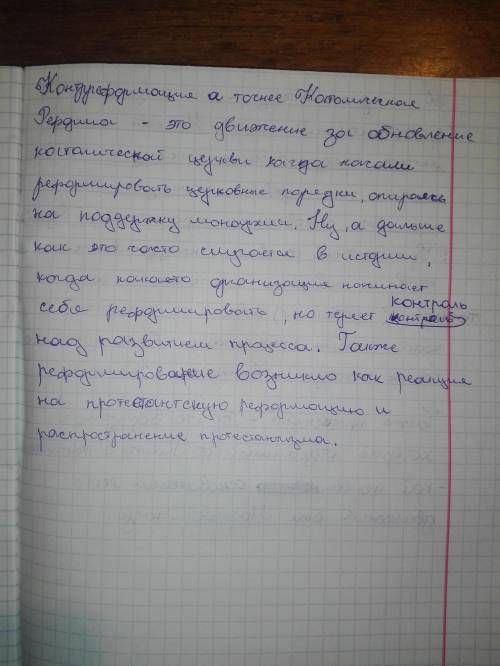 Контрреформация а точнее Католическая
Реформа - это движение за обновление
католической церкви когда начали
реформировать церковные порядки, опираясь
на поддержку монархии. Ну, а дальше
как это часто случается в истории,
когда какаято организация начинает
себя реформировать, но теряет контроль
над развитием процесса. Также
реформирование возникло как реакция
на протестантскую реформацию и
распространение протестантизма.